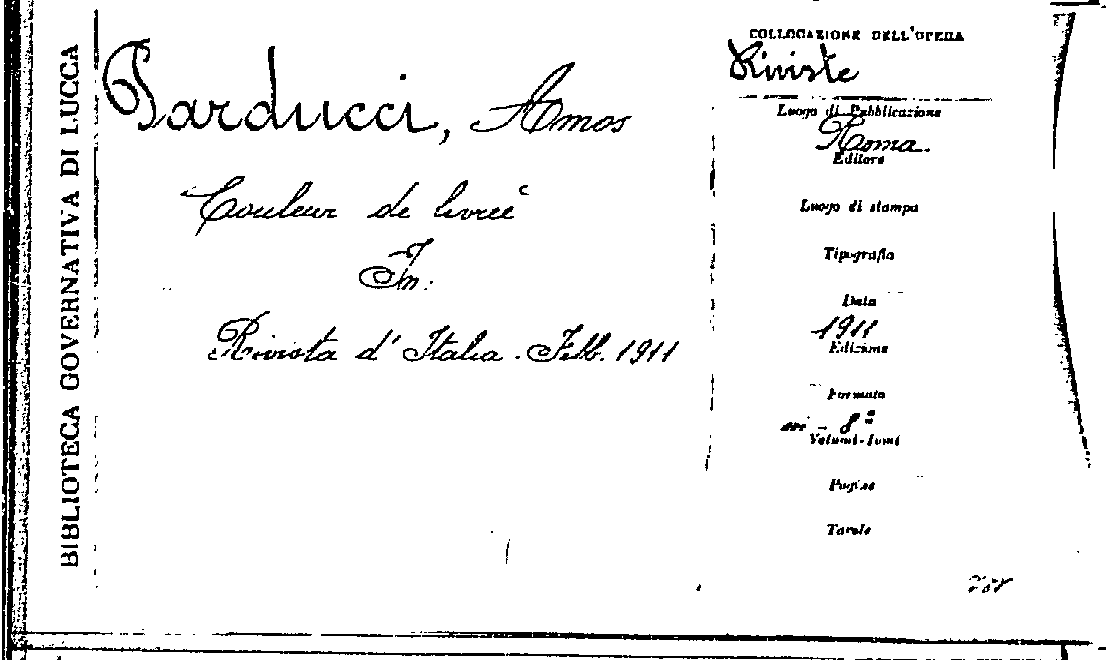 BIBLIOTECA GOVERNATIVA DI LUCCA
Parducci, Amos
Couleur de livrée
In:
Rivista d'Italia. Febb. 1911
COLLOCAZIONE DELL'OPERA
Riviste
Luogo di Pubblicazione
Roma.
Editore
Luogo di stampa
Tipografia
Data
1911
Edizione
Formato
in - 8º
Volumi-Tomi
Pagine
Tavole